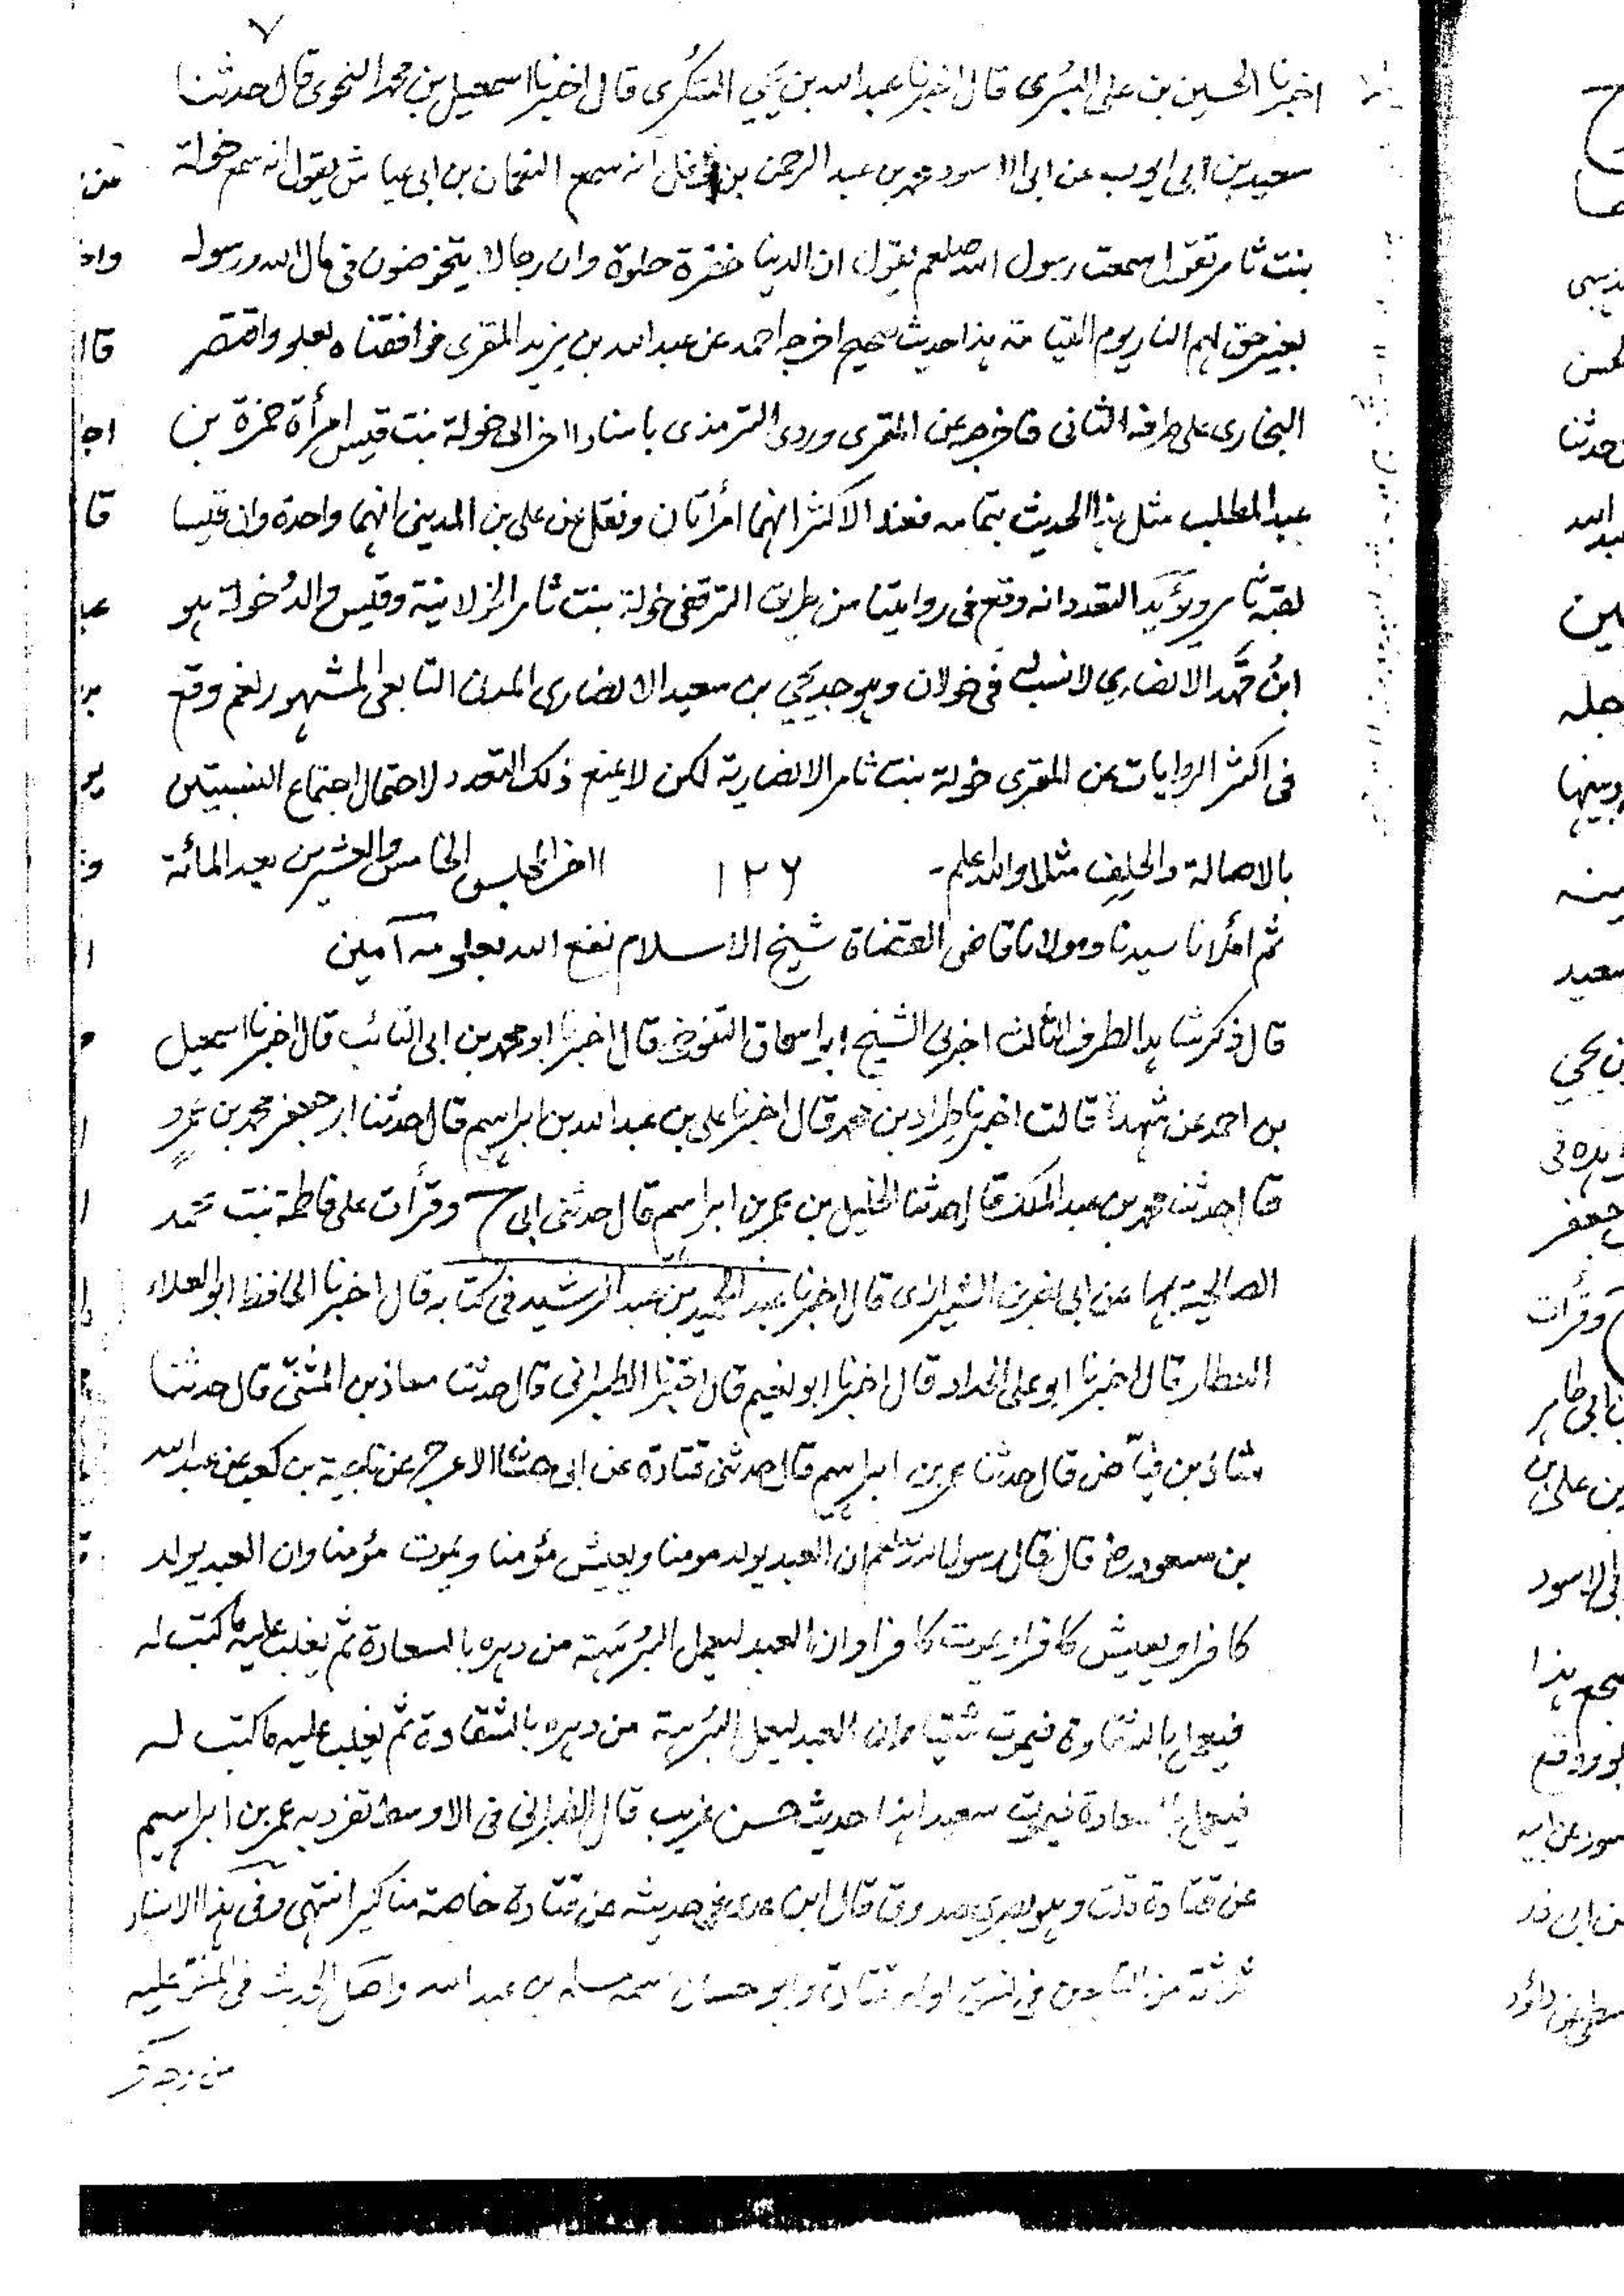 ٧
اخبرنا الحسين بن على البُسرى قال اخبرنا عبد الله بن يحيي السكرى قال اخبرنا اسمعيل بن محمد النحوى قال حدثنا
سعيد بن ابى ايوب عن ابى الاسود محمد بن عبد الرحمن بن نوفل انه سمع النعمان بن ابى عياش يقول انه سمع خولة
بنت ثامر تقول سمعت رسول الله صلعم يقول ان الدنيا خضرة حلوة وان رجالا يتخوضون فى مال الله ورسوله
بغير حق لهم النار يوم القيامة هذا حديث صحيح اخرجه احمد عن عبد الله بن يزيد المقرى فوافقناه بعلو واقتصر
البخارى على طرفه الثانى فاخرجه عن المقرى وروى الترمذى باسناد اخر الى خولة بنت قيس امرأة حمزة بن
عبد المطلب مثل هذا الحديث بتمامه فعند الاكثر انهما امرأتان ونقل عن على بن المدينى انهما واحدة وان قيسا
لقبه ثامر ويؤيد التعدد انه وقع فى روايتنا من طريق الترقفى خولة بنت ثامر الخولانية وقيس والد خولة هو
ابن قَهد الانصاري لا نسب له فى خولان وهو جد يحيي بن سعيد الانصارى المدنى التابعى المشهور نعم وقع
فى اكثر الروايات عن المقرى خولة بنت ثامر الانصارية لكن لا يمنع ذلك التعدد لاحتمال اجتماع النسبتين
بالاصالة والحلف مثلا والله اعلم - ١٢٦ اخر المجلس الخامس والعشرين بعد المائة
ثم املانا سيدنا ومولانا قاضى القضاة شيخ الاسلام نفع الله بعلومه آمين
قال ذكر شاهد الطرف الثالث اخبرنى الشيخ ابو اسحاق التنوخى قال اخبرنا ابو محمد بن ابى التائب قال اخبرنا اسمعيل
بن احمد عن شهدة قالت اخبرنا طراد بن محمد قال اخبرنا على بن عبد الله بن ابراهيم قال حدثنا ابو جعفر محمد بن عمرو
قال حدثنا محمد بن عبد الملك قال حدثنا الخليل بن عمر بن ابراهيم قال حدثنى ابى ح وقرأت على فاطمة بنت محمد
الصالحية بها عن ابى نصر بن الشيرازى قال اخبرنا عبد الحميد بن عبد الرشيد فى كتابه قال اخبرنا الحافظ ابو العلاء
العطار قال اخبرنا ابو على الحداد قال اخبرنا ابو نعيم قال اخبرنا الطبرانى قال حدثنا معاذ بن المثنّى قال حدثنا
شاذ بن فيّاض قال حدثنا عمر بن ابراهيم قال حدثنى قتادة عن ابى حسان الاعرج عن ناجية بن كعب عن عبد الله
بن مسعود رض قال قال رسول الله صلعم ان العبد يولد مومنا ويعيش مؤمنا ويموت مؤمنا وان العبد يولد
كافرا ويعيش كافرا ويموت كافرا وان العبد ليعمل البُرهَة من دهره بالسعادة ثم يغلب عليه ما كتب له
فيعمل بالشقاوة فيموت شقيا وان العبد ليعمل البُرهة من دهره بالشقاوة ثم يغلب عليه ما كتب له
فيعمل بالسعادة فيموت سعيدا هذا حديث حسن غريب قال الطبرانى فى الاوسط تفرد به عمر بن ابراهيم
عن قتادة قلت وهو بصري صدوق قال ابن عدى فى حديثه عن قتادة خاصة مناكير انتهى وفى هذا الاسناد
ثلاثة من التابعين فى نسق اولهم قتادة وابو حسان اسمه مسلم بن عبد الله واصل الحديث فى المتفق عليه
من وجه آخر